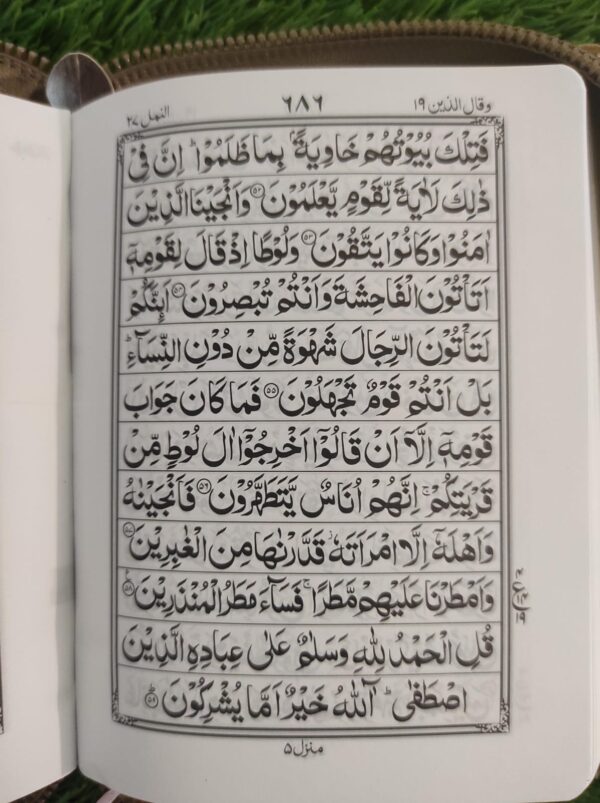 وقال الذين ١٩
٦٨٦
النمل ٢٧
فَتِلْكَ بُيُوْتُهُمْ خَاوِيَةًۢ بِمَا ظَلَمُوْا ؕ اِنَّ فِیْ
ذٰلِكَ لَاٰيَةً لِّقَوْمٍ يَّعْلَمُوْنَ ﴿۵۲﴾ وَاَنْجَيْنَا الَّذِيْنَ
اٰمَنُوْا وَكَانُوْا يَتَّقُوْنَ ﴿۵۳﴾ وَلُوْطًا اِذْ قَالَ لِقَوْمِهٖۤ
اَتَاْتُوْنَ الْفَاحِشَةَ وَاَنْتُمْ تُبْصِرُوْنَ ﴿۵۴﴾ اَئِنَّكُمْ
لَتَاْتُوْنَ الرِّجَالَ شَهْوَةً مِّنْ دُوْنِ النِّسَآءِ ؕ
بَلْ اَنْتُمْ قَوْمٌ تَجْهَلُوْنَ ﴿۵۵﴾ فَمَا كَانَ جَوَابَ
قَوْمِهٖۤ اِلَّاۤ اَنْ قَالُوْۤا اَخْرِجُوْۤا اٰلَ لُوْطٍ مِّنْ
قَرْيَتِكُمْ ۚ اِنَّهُمْ اُنَاسٌ يَّتَطَهَّرُوْنَ ﴿۵۶﴾ فَاَنْجَيْنٰهُ
وَاَهْلَهٗۤ اِلَّا امْرَاَتَهٗ ؗ قَدَّرْنٰهَا مِنَ الْغٰبِرِيْنَ ﴿۵۷﴾
وَاَمْطَرْنَا عَلَيْهِمْ مَّطَرًا ۚ فَسَآءَ مَطَرُ الْمُنْذَرِيْنَ ﴿۵۸﴾
قُلِ الْحَمْدُ لِلّٰهِ وَسَلٰمٌ عَلٰى عِبَادِهِ الَّذِيْنَ
اصْطَفٰى ؕ آٰللّٰهُ خَيْرٌ اَمَّا يُشْرِكُوْنَ ﴿۵۹﴾
منزل ۵